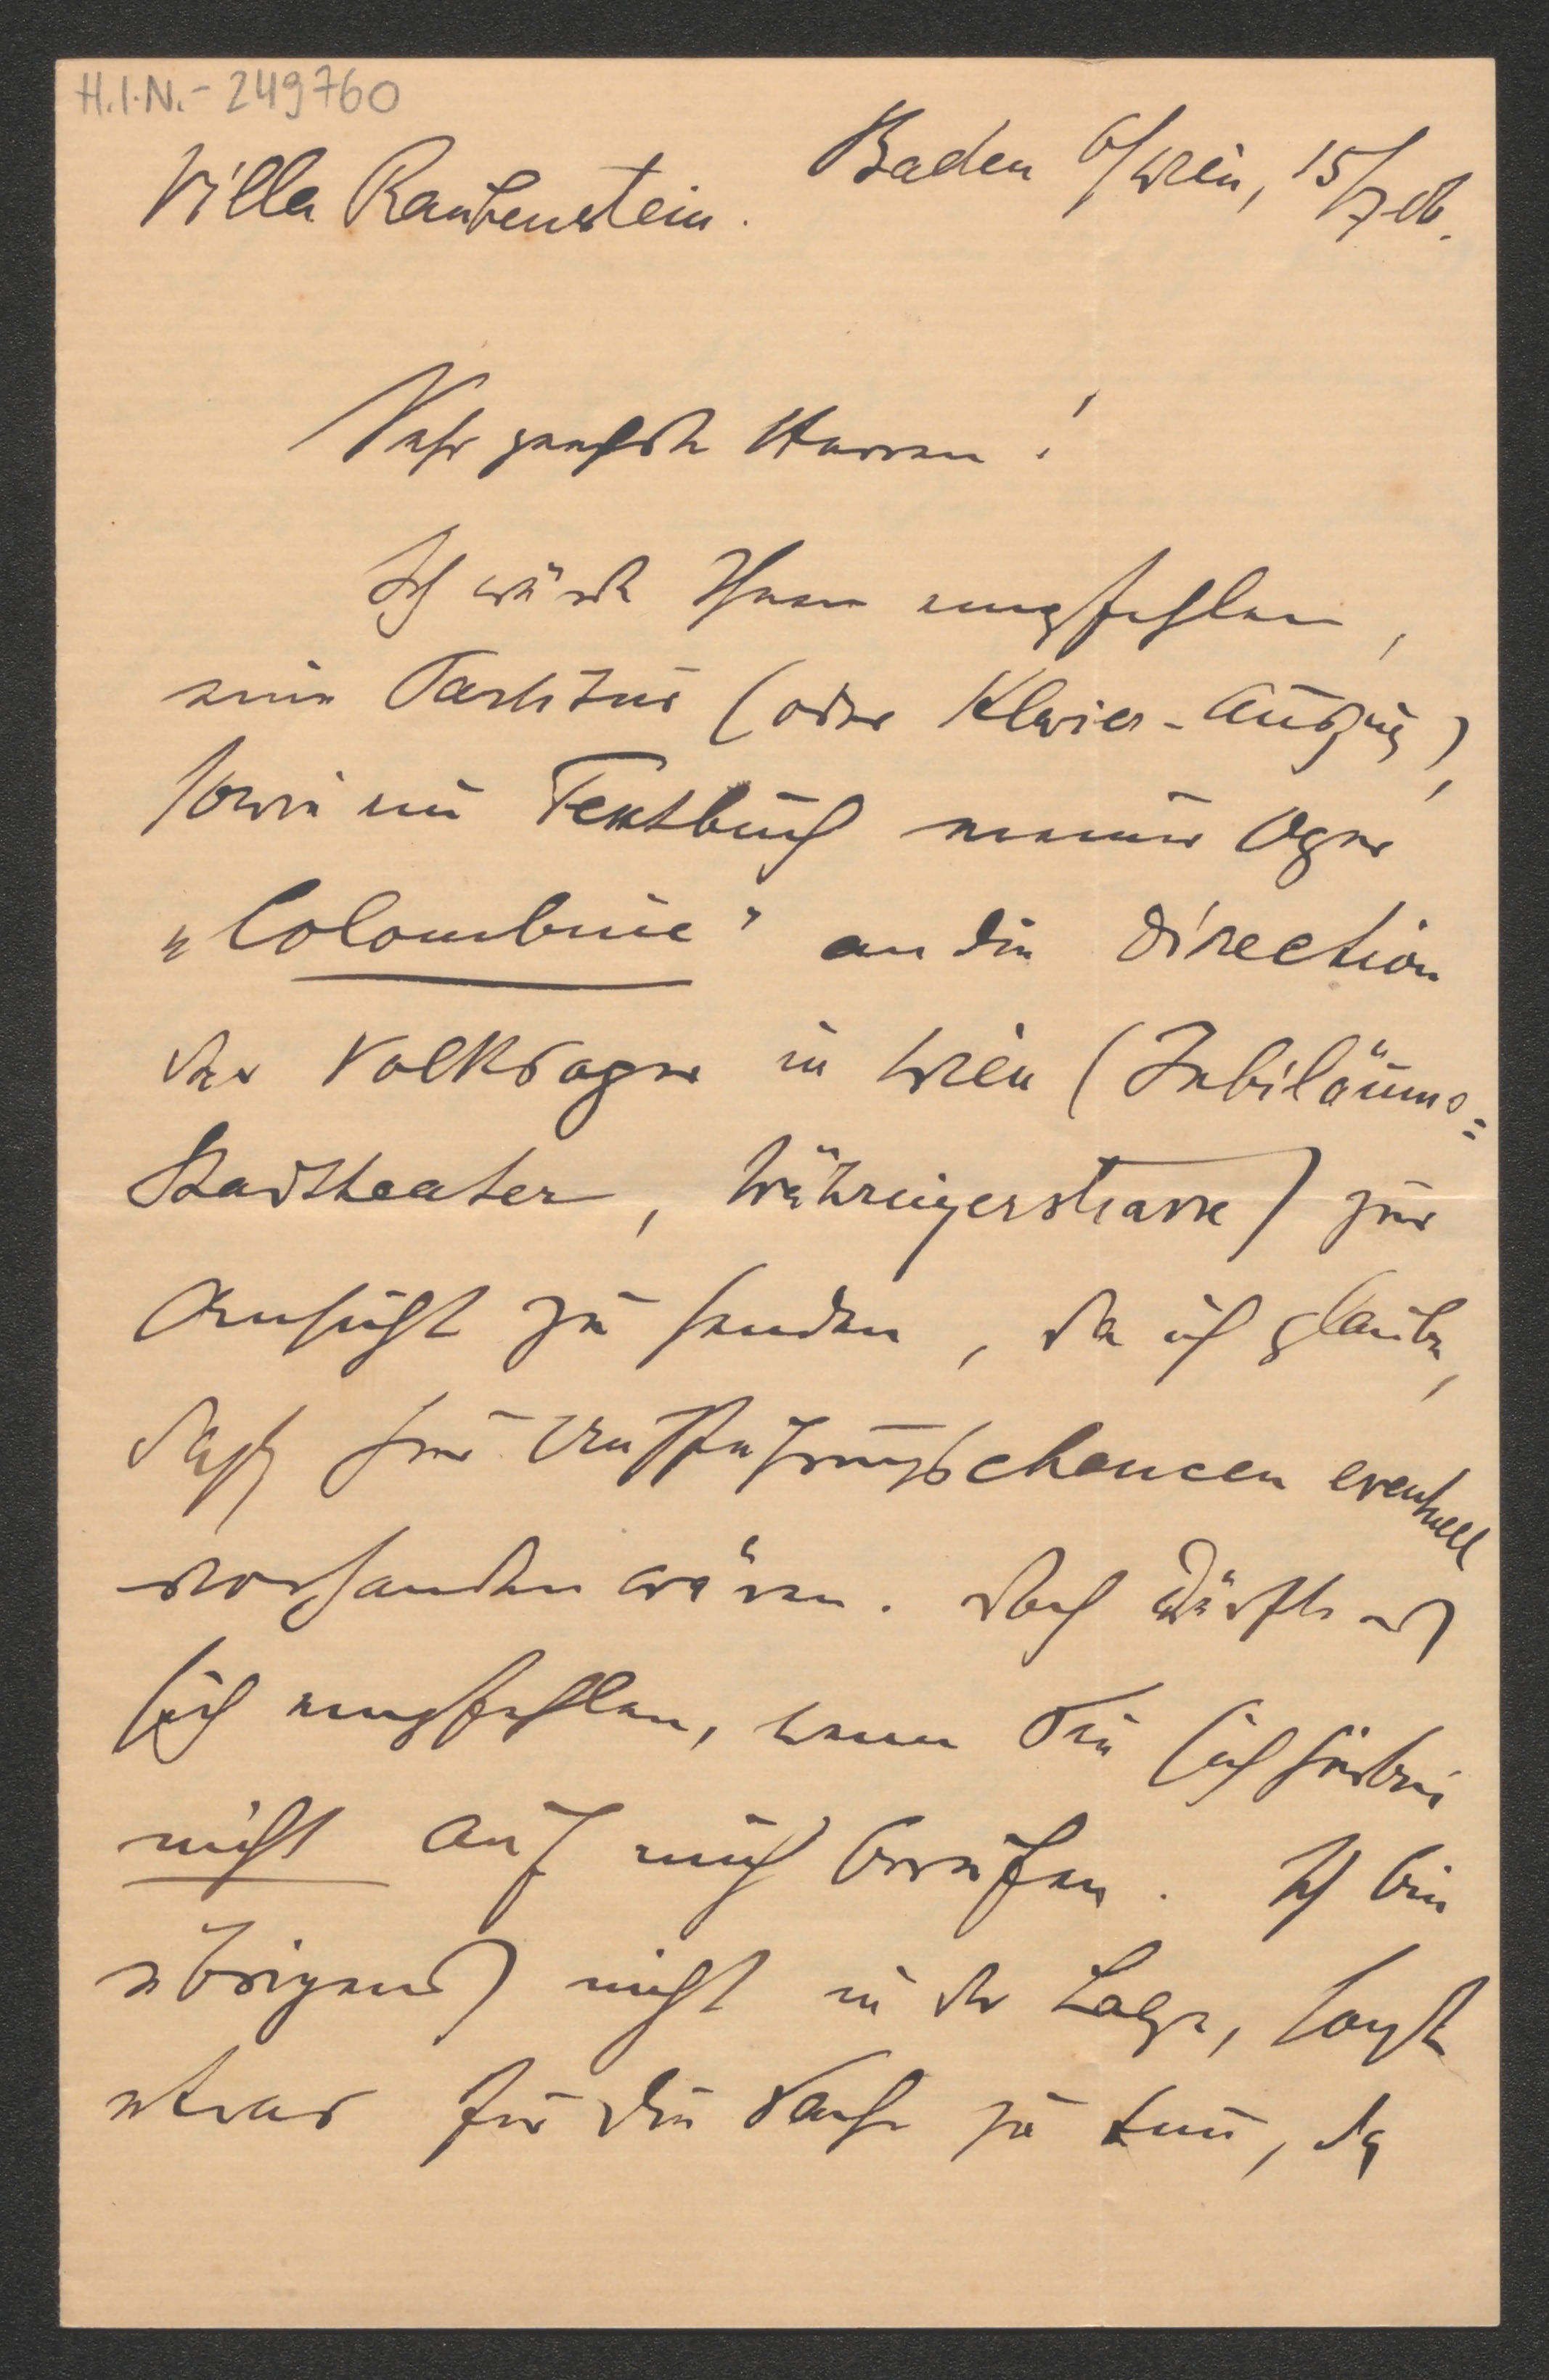 H.I.N.-249760
Villa Rauhenstein. Baden b/Wien, 15/7 06.
Sehr geehrte Herren!
Ich würde Ihnen empfehlen,
eine Partitur (oder Klavier-Auszug),
sowie ein Textbuch meiner Oper
„Colombine" an die Direction
der Volksoper in Wien (Jubiläums=
Stadttheater, Währingerstrasse) zur
Ansicht zu senden, da ich glaube,
daß hier Aufführungschancen eventuell
vorhanden wären. Doch dürfte es
sich empfehlen, wenn Sie sich hierbei
nicht auf mich berufen. Ich bin
übrigens nicht in der Lage, sonst
etwas für die Sache zu tun, da